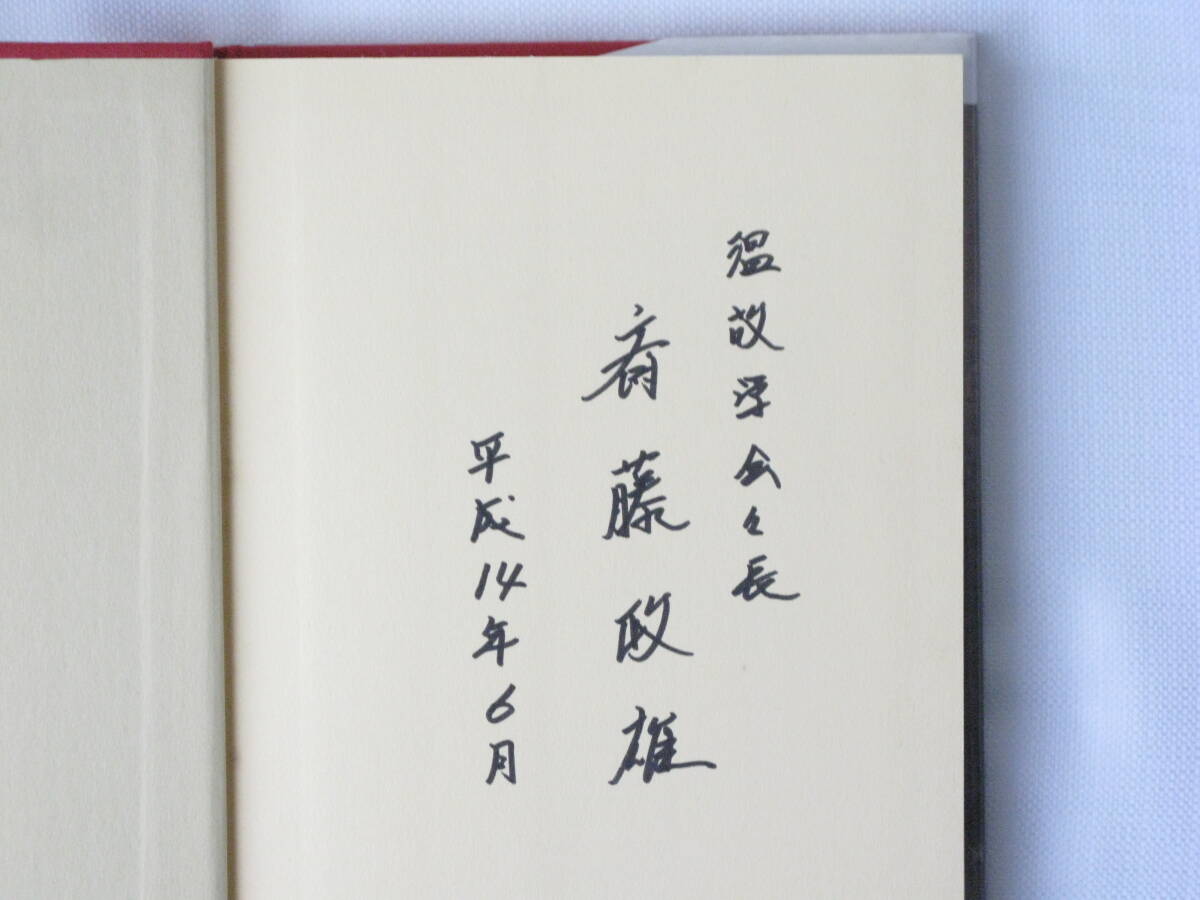 温故学会々長
斎藤政雄
平成14年6月